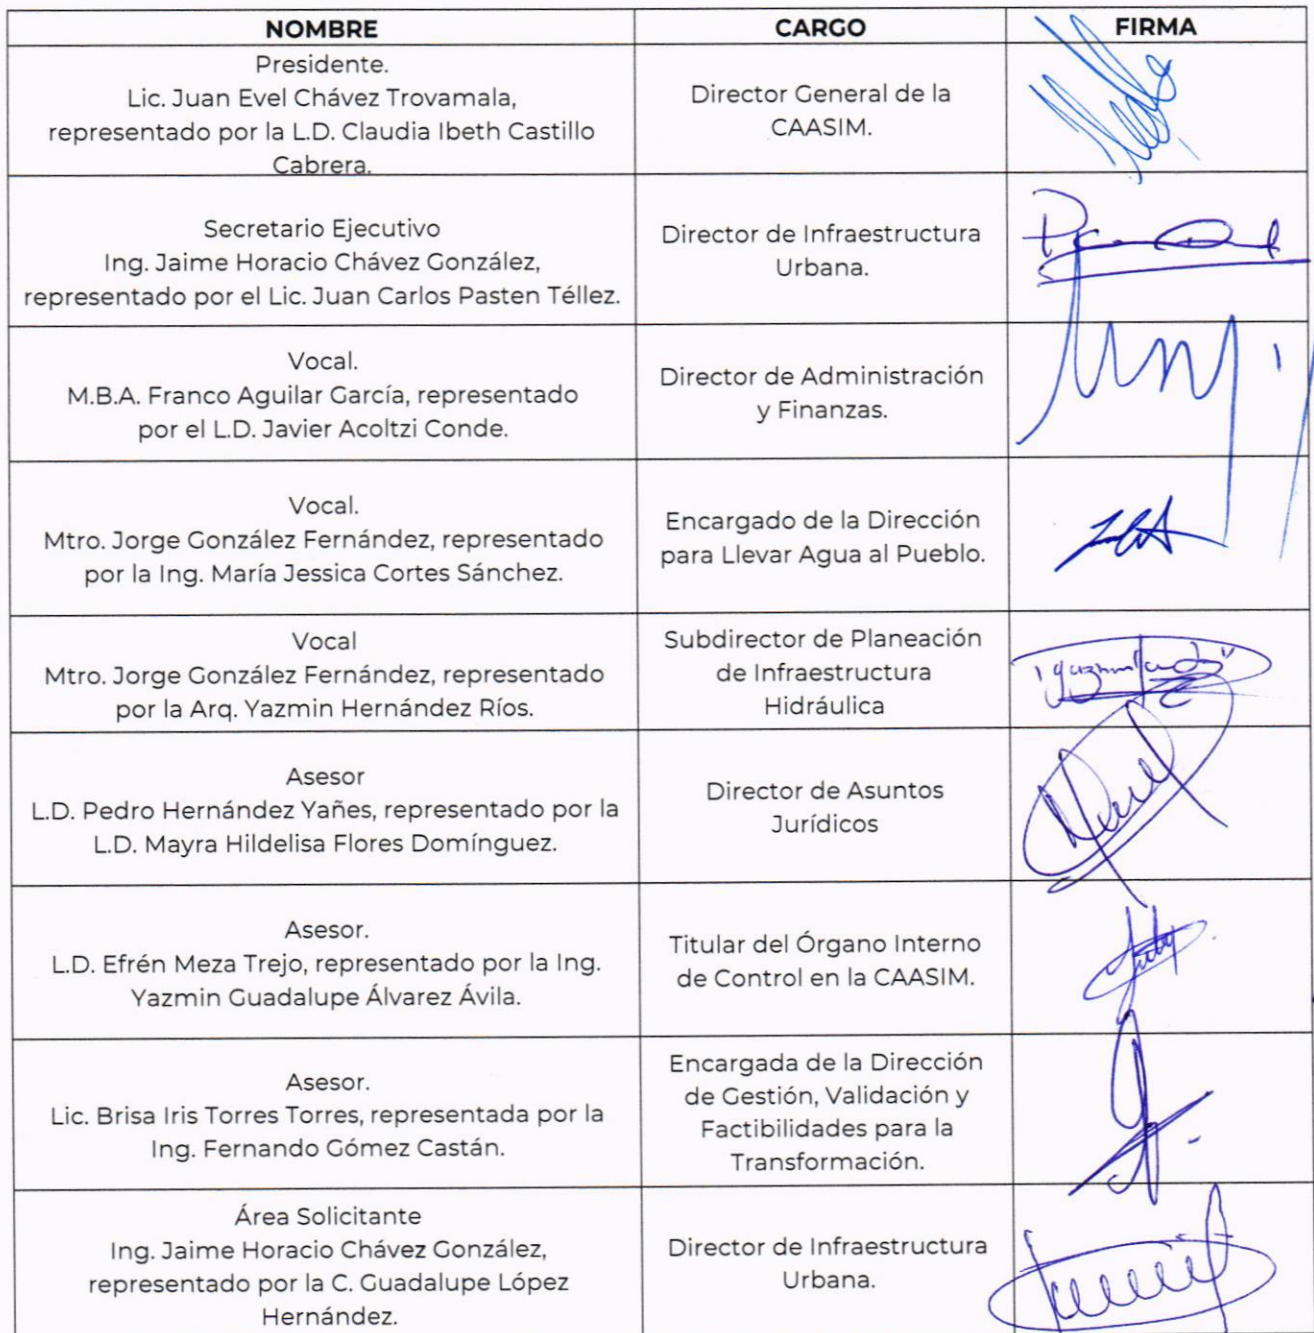 NOMBRE CARGO FIRMA
Presidente.
Lic. Juan Evel Chávez Trovamala,
representado por la L.D. Claudia Ibeth Castillo
Cabrera.
Director General de la
CAASIM.
Secretario Ejecutivo
Ing. Jaime Horacio Chávez González,
representado por el Lic. Juan Carlos Pasten Téllez.
Director de Infraestructura
Urbana.
Vocal.
M.B.A. Franco Aguilar García, representado
por el L.D. Javier Acoltzi Conde.
Director de Administración
y Finanzas.
Vocal.
Mtro. Jorge González Fernández, representado
por la Ing. María Jessica Cortes Sánchez.
Encargado de la Dirección
para Llevar Agua al Pueblo.
Vocal
Mtro. Jorge González Fernández, representado
por la Arq. Yazmin Hernández Ríos.
Subdirector de Planeación
de Infraestructura
Hidráulica
Asesor
L.D. Pedro Hernández Yañes, representado por la
L.D. Mayra Hildelisa Flores Domínguez.
Director de Asuntos
Jurídicos
Asesor.
L.D. Efrén Meza Trejo, representado por la Ing.
Yazmin Guadalupe Álvarez Ávila.
Titular del Órgano Interno
de Control en la CAASIM.
Asesor.
Lic. Brisa Iris Torres Torres, representada por la
Ing. Fernando Gómez Castán.
Encargada de la Dirección
de Gestión, Validación y
Factibilidades para la
Transformación.
Área Solicitante
Ing. Jaime Horacio Chávez González,
representado por la C. Guadalupe López
Hernández.
Director de Infraestructura
Urbana.